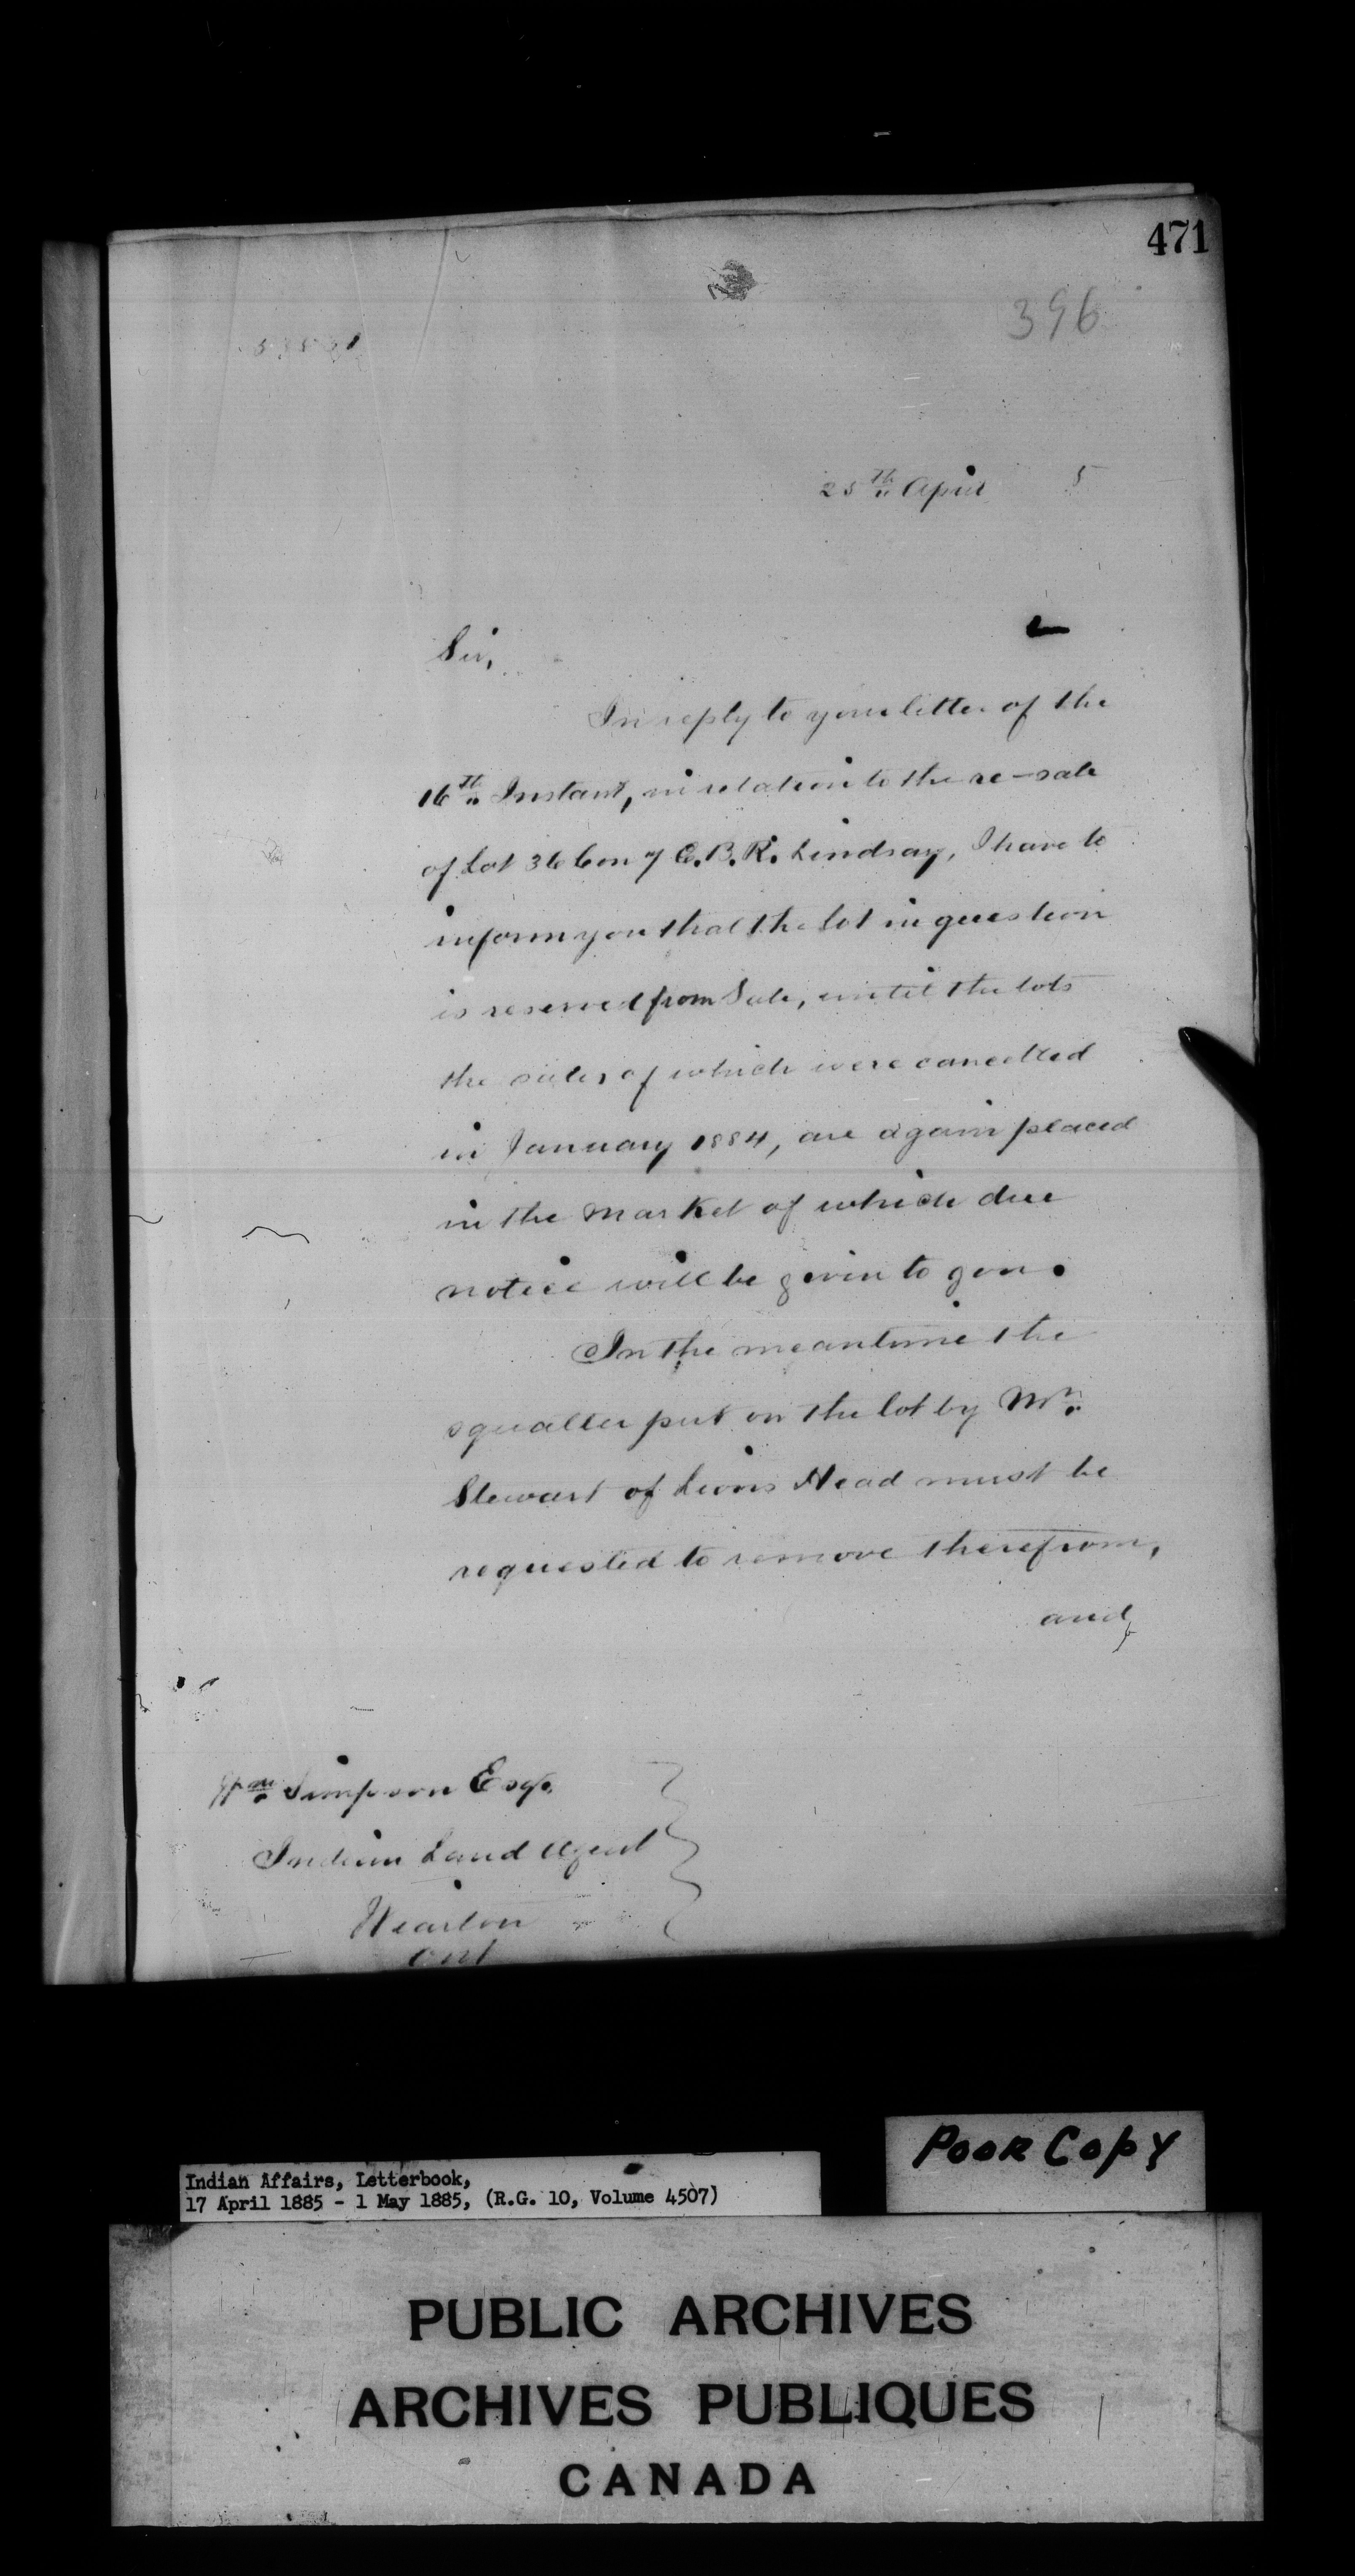 471
396
25th April 5
Sir,
In reply to your letter of the
16th Instant, in relation to the re-sale
of Lot 36 Con 7 E.B.R. Lindsay, I have to
inform you that the lot in question
is reserved from Sale, until the lots
the sales of which were cancelled
in January 1884, are again placed
in the Market of which due
notice will be given to you.
In the meantime the
squatter put on the lot by Mr.
Stewart of Lions Head must be
requested to remove therefrom,
and
Wm Simpson Esq.
Indian Land Agent
Wiarton
Ont
Poor Copy
Indian Affairs, Letterbook,
17 April 1885 - 1 May 1885, (R.G. 10, Volume 4507)
PUBLIC ARCHIVES
ARCHIVES PUBLIQUES
CANADA